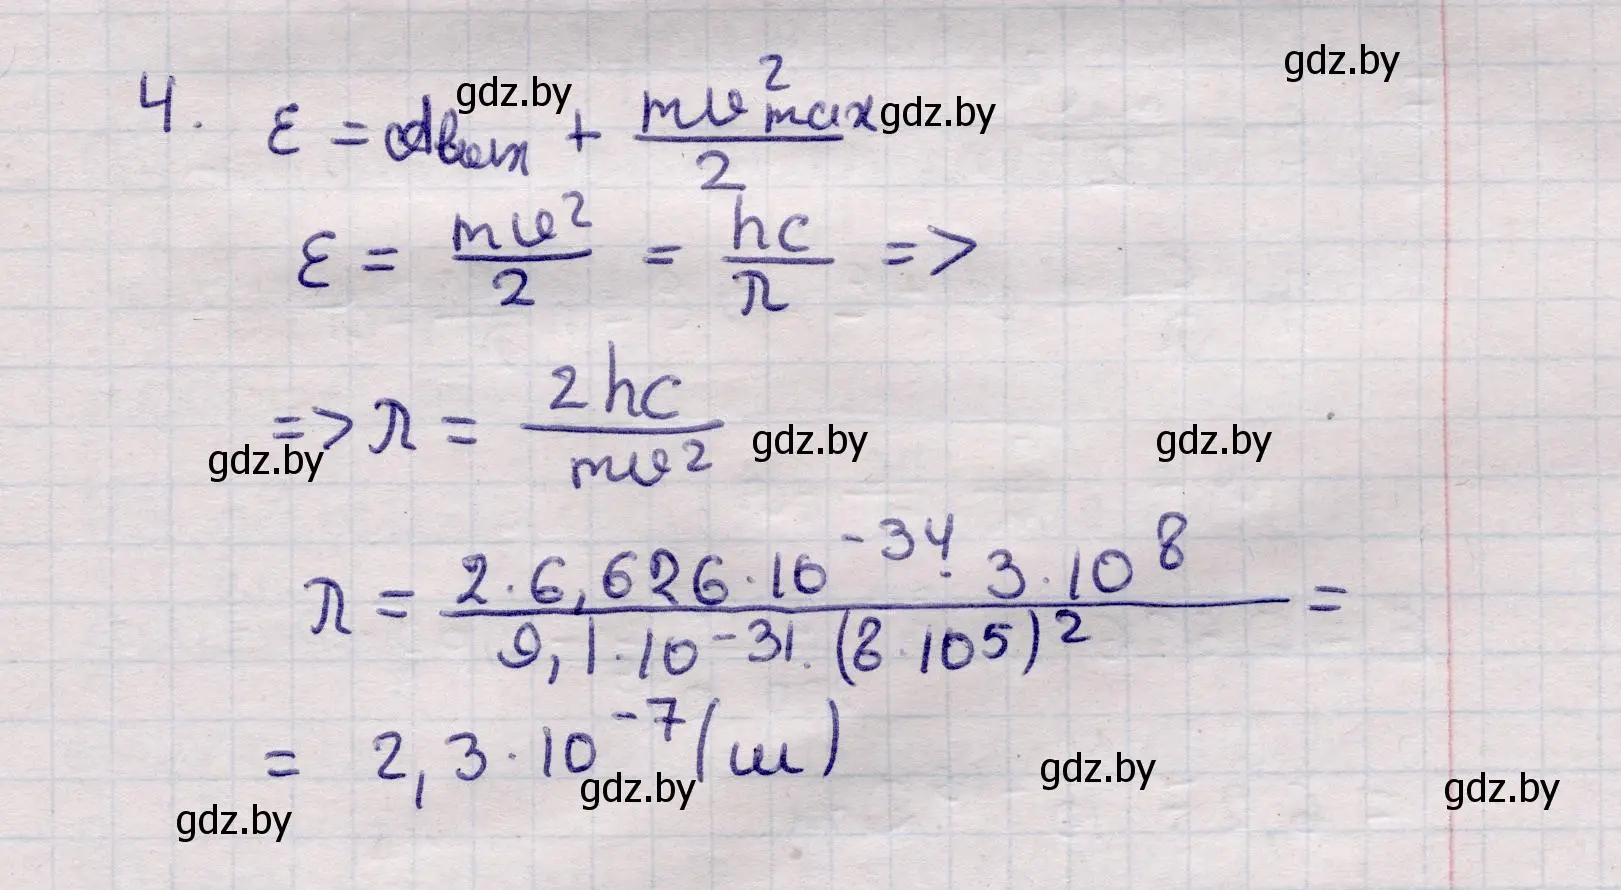 gdz.by
4. ε = Aвых + mv²max / 2
gdz.by gdz.by
ε = mv² / 2 = hc / λ =>
=> λ = 2hc / mv²
gdz.by gdz.by gdz.by
λ = 2·6,626·10⁻³⁴·3·10⁸ / 9,1·10⁻³¹·(8·10⁵)² =
= 2,3·10⁻⁷ (м)
gdz.by gdz.by gdz.by
gdz.by